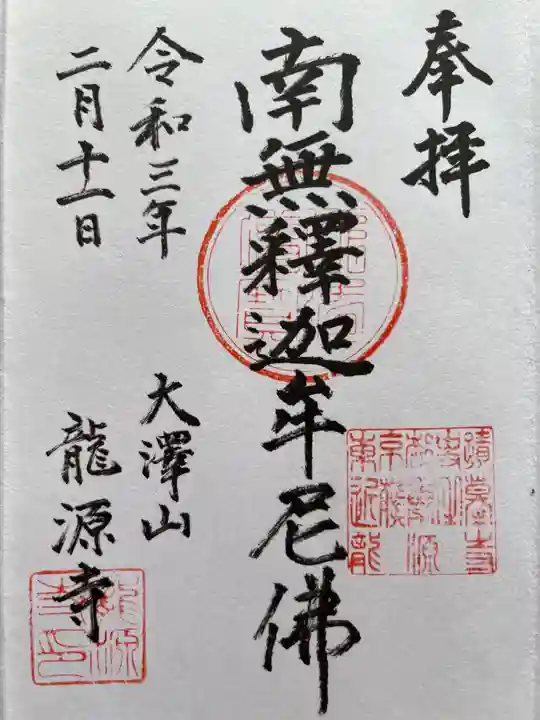 奉拝
南無釋迦牟尼佛
令和三年
二月十一日
大澤山
龍源寺